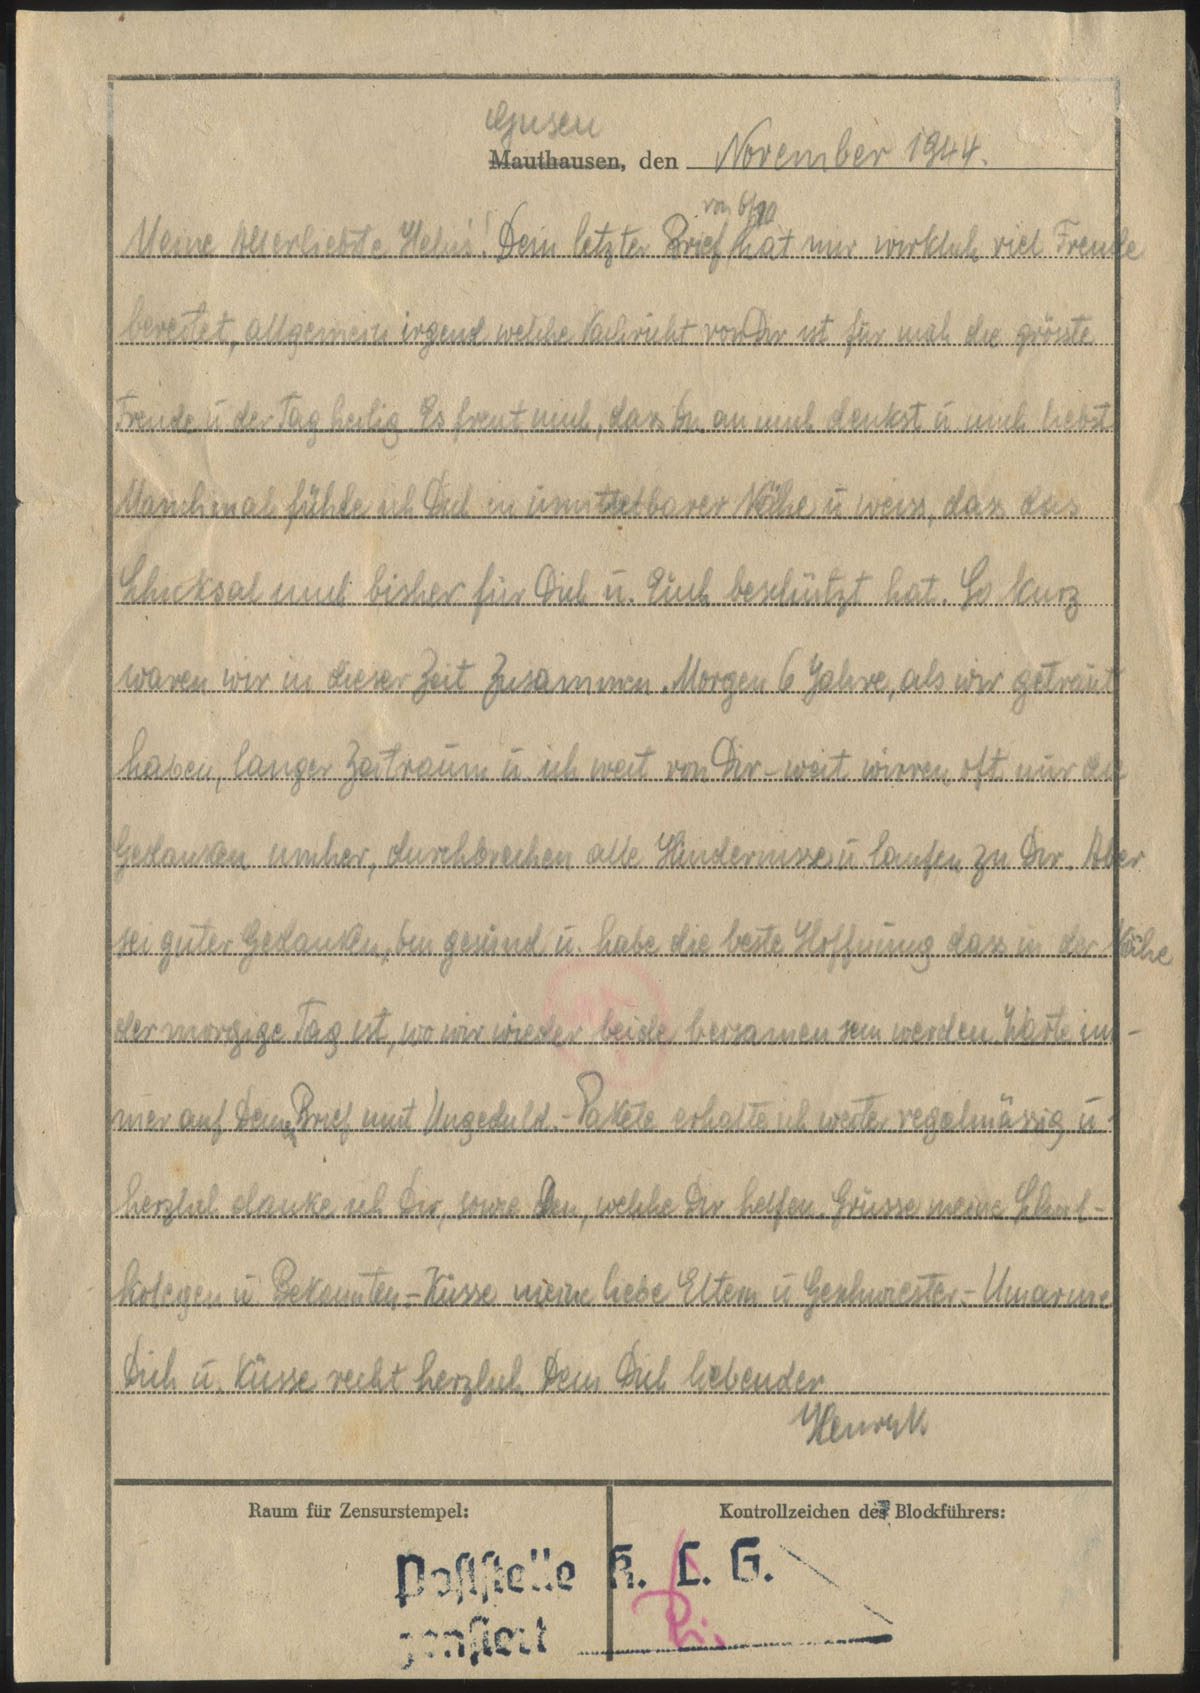 Gusen
Mauthausen, den November 1944.
von 6/10
Meine Allerliebste Helus! Dein letzter Brief hat mir wirklich viel Freude
bereitet, allgemein irgend welche Nachricht von Dir ist für mich die grösste
Freude u der Tag heilig. Es freut mich, dass Du an mich denkst u mich liebst
Manchmal fühle ich Dich in unmittelbarer Nähe u weiss, dass das
Schicksal mich bisher für Dich u. Euch beschützt hat. So kurz
waren wir in dieser Zeit zusammen. Morgen 6 Jahre, als wir getraut
haben, langer Zeitraum u ich weit von Dir - weit wirren oft nur die
Gedanken umher, durchbrechen alle Hindernisse u laufen zu Dir. Aber
sei guter Gedanken, bin gesund u. habe die beste Hoffnung dass in der Nähe
der morgige Tag ist, wo wir wieder beide beisamen sein werden. Warte im-
mer auf Deine Brief mit Ungeduld. - Pakete erhalte ich weiter regelmässig u
herzlich danke ich Dir, sowie den, welche Dir helfen. Grüsse meine Schul-
kolegen u Bekannten. - Küsse meine liebe Eltern u Geschwister. - Umarme
Dich u. Küsse recht herzlich Dein Dich liebender
Henryk
Raum für Zensurstempel:
Kontrollzeichen des Blockführers:
Poststelle K. L. G.
zensiert